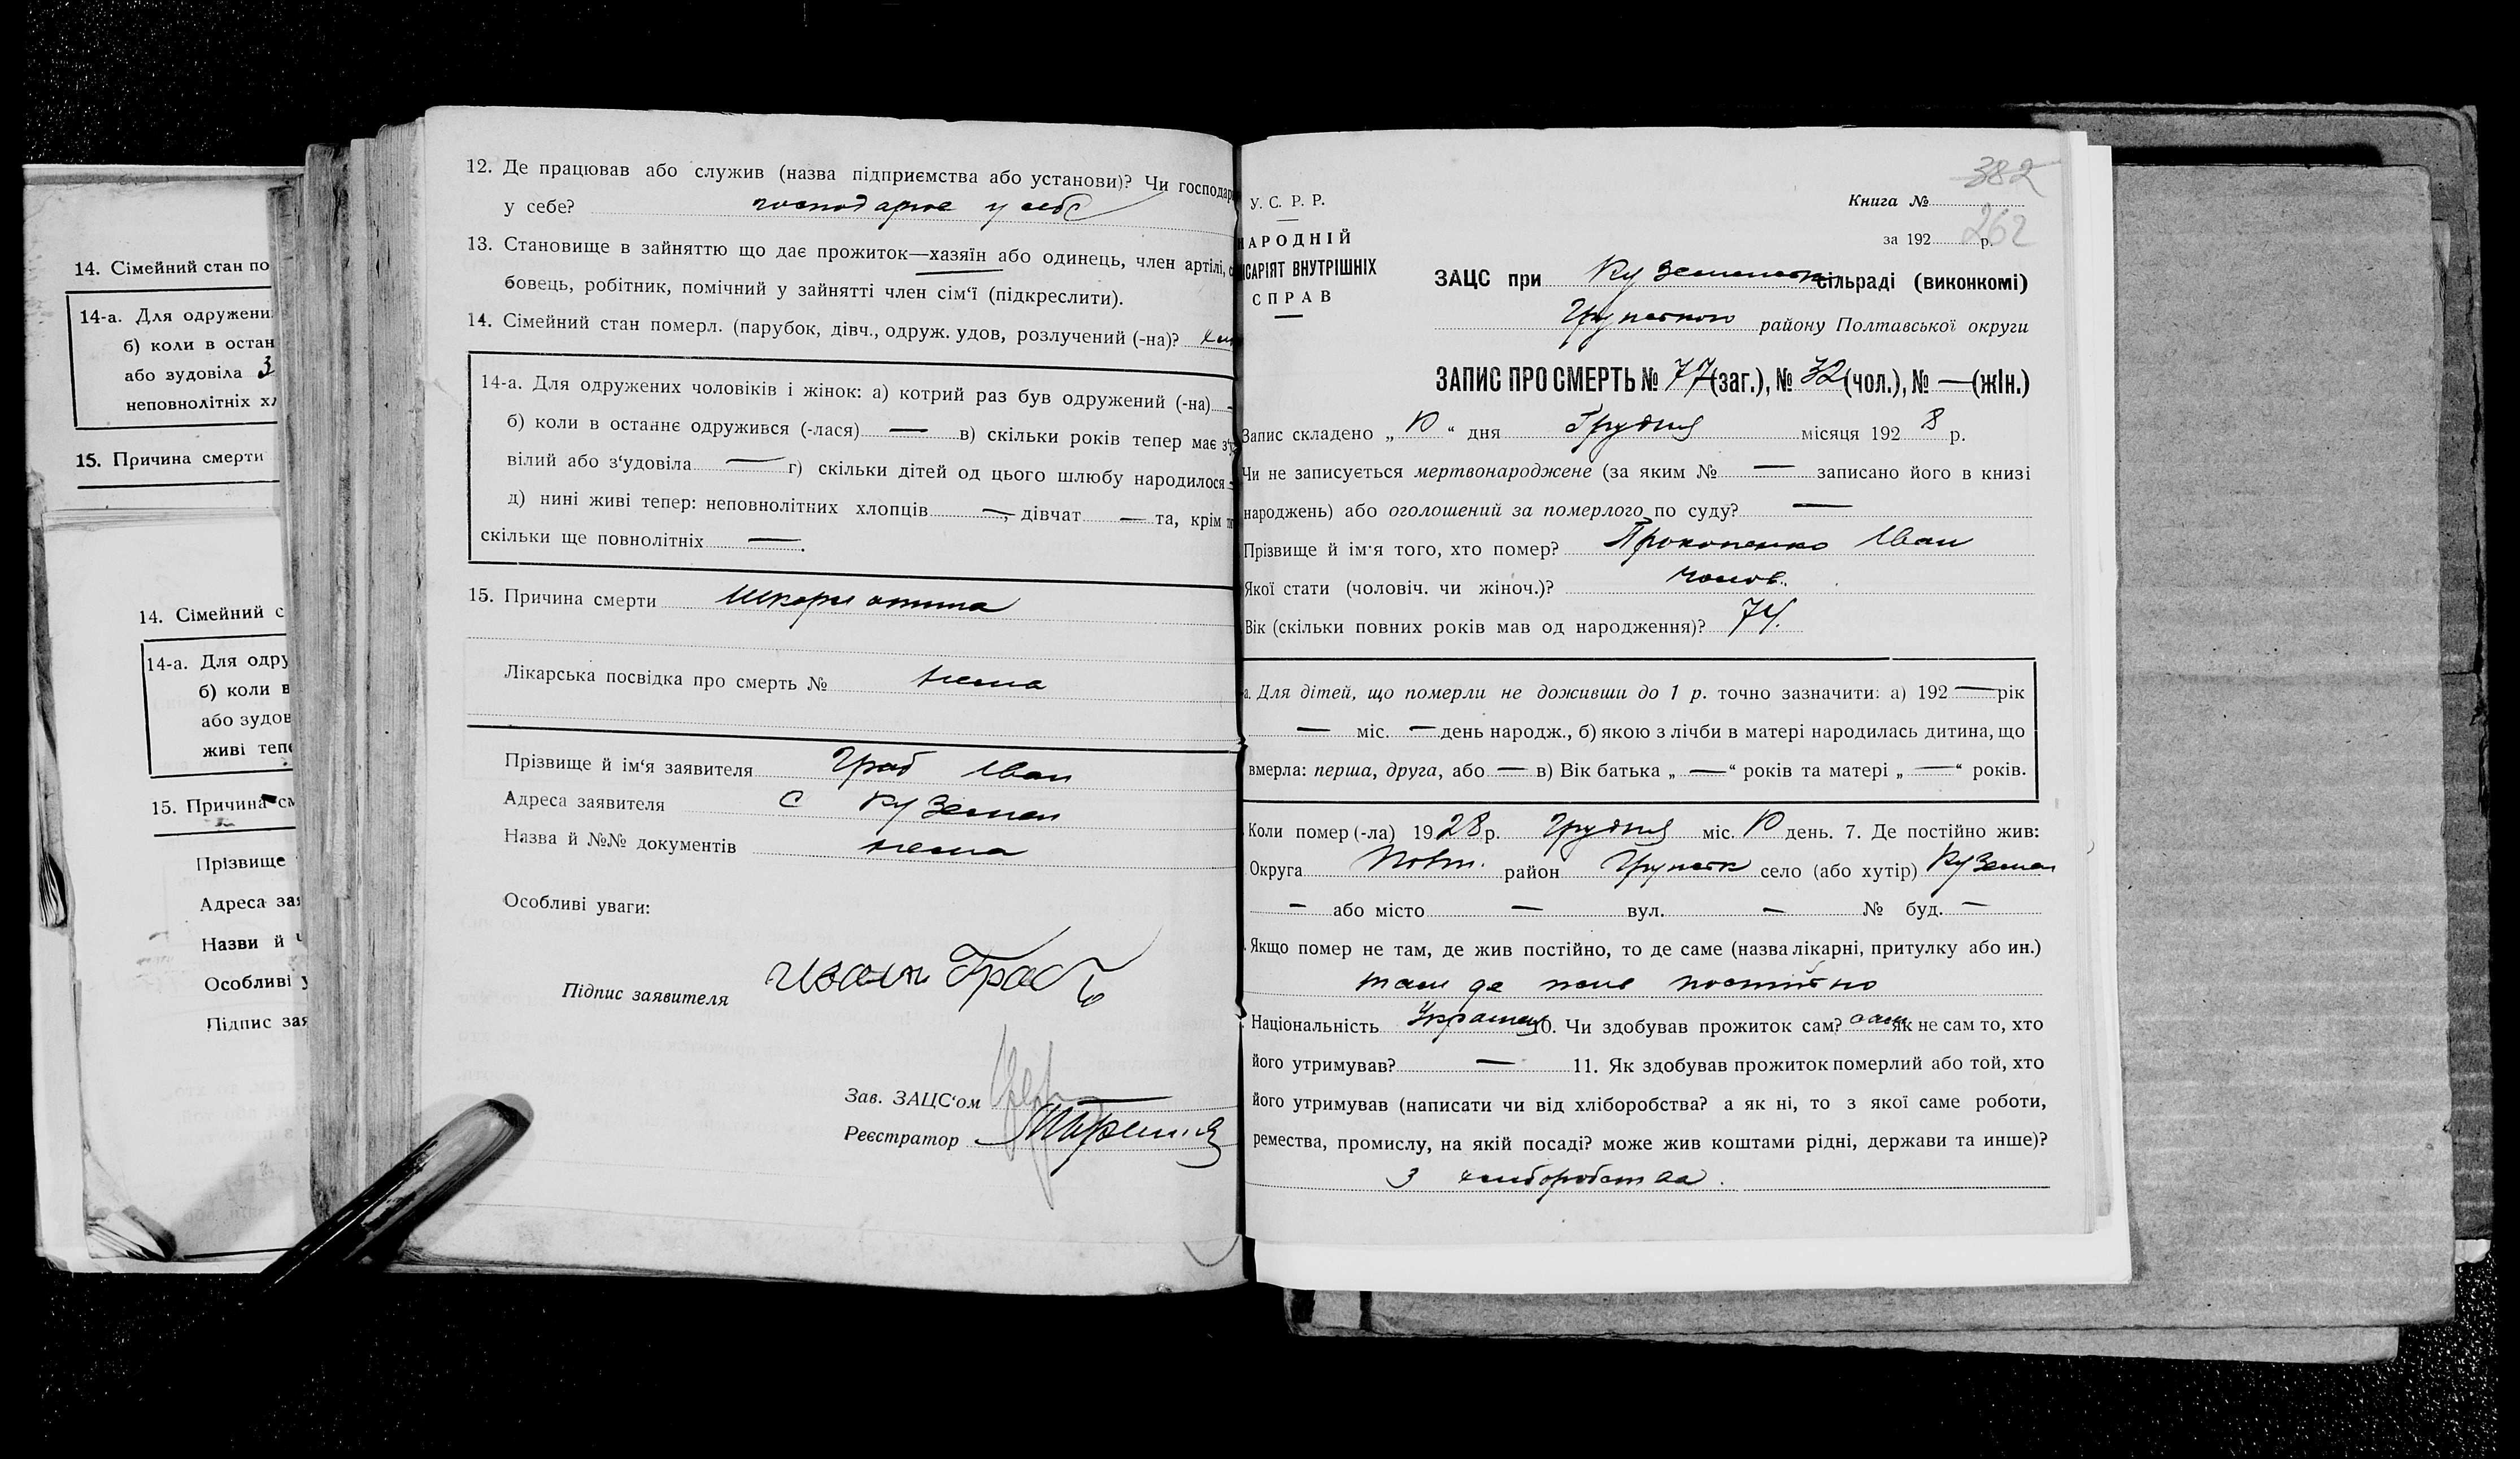 14. Сімейний стан по
14-а. Для одружени
б) коли в остан
або зудовіла 3
неповнолітніх хл
15. Причина смерти
14. Сімейний с
14-а. Для одру
б) коли в
або зудов
живі тепе
15. Причина см
Прізвище
Адреса зая
Назви й ч
Особливі у
Підпис зая
12. Де працював або служив (назва підприємства або установи)? Чи господарю
у себе? господарює у себе
13. Становище в зайняттю що дає прожиток—хазяїн або одинець, член артілі, с
бовець, робітник, помічний у зайнятті член сім‘ї (підкреслити).
14. Сімейний стан померл. (парубок, дівч., одруж. удов, розлучений (-на)?
14-а. Для одружених чоловіків і жінок: а) котрий раз був одружений (-на) —
б) коли в останнє одружився (-лася) — в) скільки років тепер має з‘у
вілий або з‘удовіла — г) скільки дітей од цього шлюбу народилося —
д) нині живі тепер: неповнолітних хлопців —, дівчат — та, крім т
скільки ще повнолітніх —.
15. Причина смерти Шкорлятина
Лікарська посвідка про смерть № нема
Прізвище й ім‘я заявителя Граб Іван
Адреса заявителя с Куземен
Назва й №№ документів нема
Особливі уваги:
Підпис заявителя Иван Грабъ
Зав. ЗАЦС‘ом
Реєстратор
382
Книга №
262
за 192 р.
У. С. Р. Р.
НАРОДНІЙ
ІСАРІЯТ ВНУТРІШНІХ
СПРАВ
ЗАЦС при Куземенськ сільраді (виконкомі)
Грунського району Полтавської округи
ЗАПИС ПРО СМЕРТЬ № 77 (заг.), № 32 (чол.), № — (жін.)
Запис складено „ 10 “ дня Грудня місяця 192 8 р.
Чи не записується мертвонароджене (за яким № — записано його в книзі
народжень) або оголошений за померлого по суду? —
Прізвище й ім‘я того, хто помер? Прокопенко Іван
Якої стати (чоловіч. чи жіноч.)? чолов.
Вік (скільки повних років мав од народження)? 74.
а. Для дітей, що померли не доживши до 1 р. точно зазначити: а) 192 — рік
— міс. — день народж., б) якою з лічби в матері народилась дитина, що
вмерла: перша, друга, або — в) Вік батька „ — “ років та матері „ — “ років.
Коли помер (-ла) 19 28 р. Грудня міс. 10 день. 7. Де постійно жив:
Округа Полт. район Грунськ село (або хутір) Куземен
— або місто — вул. — № буд. —
Якщо помер не там, де жив постійно, то де саме (назва лікарні, притулку або ин.)
там де жив постійно
Національність Українец 10. Чи здобував прожиток сам? сам як не сам то, хто
його утримував? — 11. Як здобував прожиток померлий або той, хто
його утримував (написати чи від хліборобства? а як ні, то з якої саме роботи,
ремества, промислу, на якій посаді? може жив коштами рідні, держави та инше)?
З хліборобства.